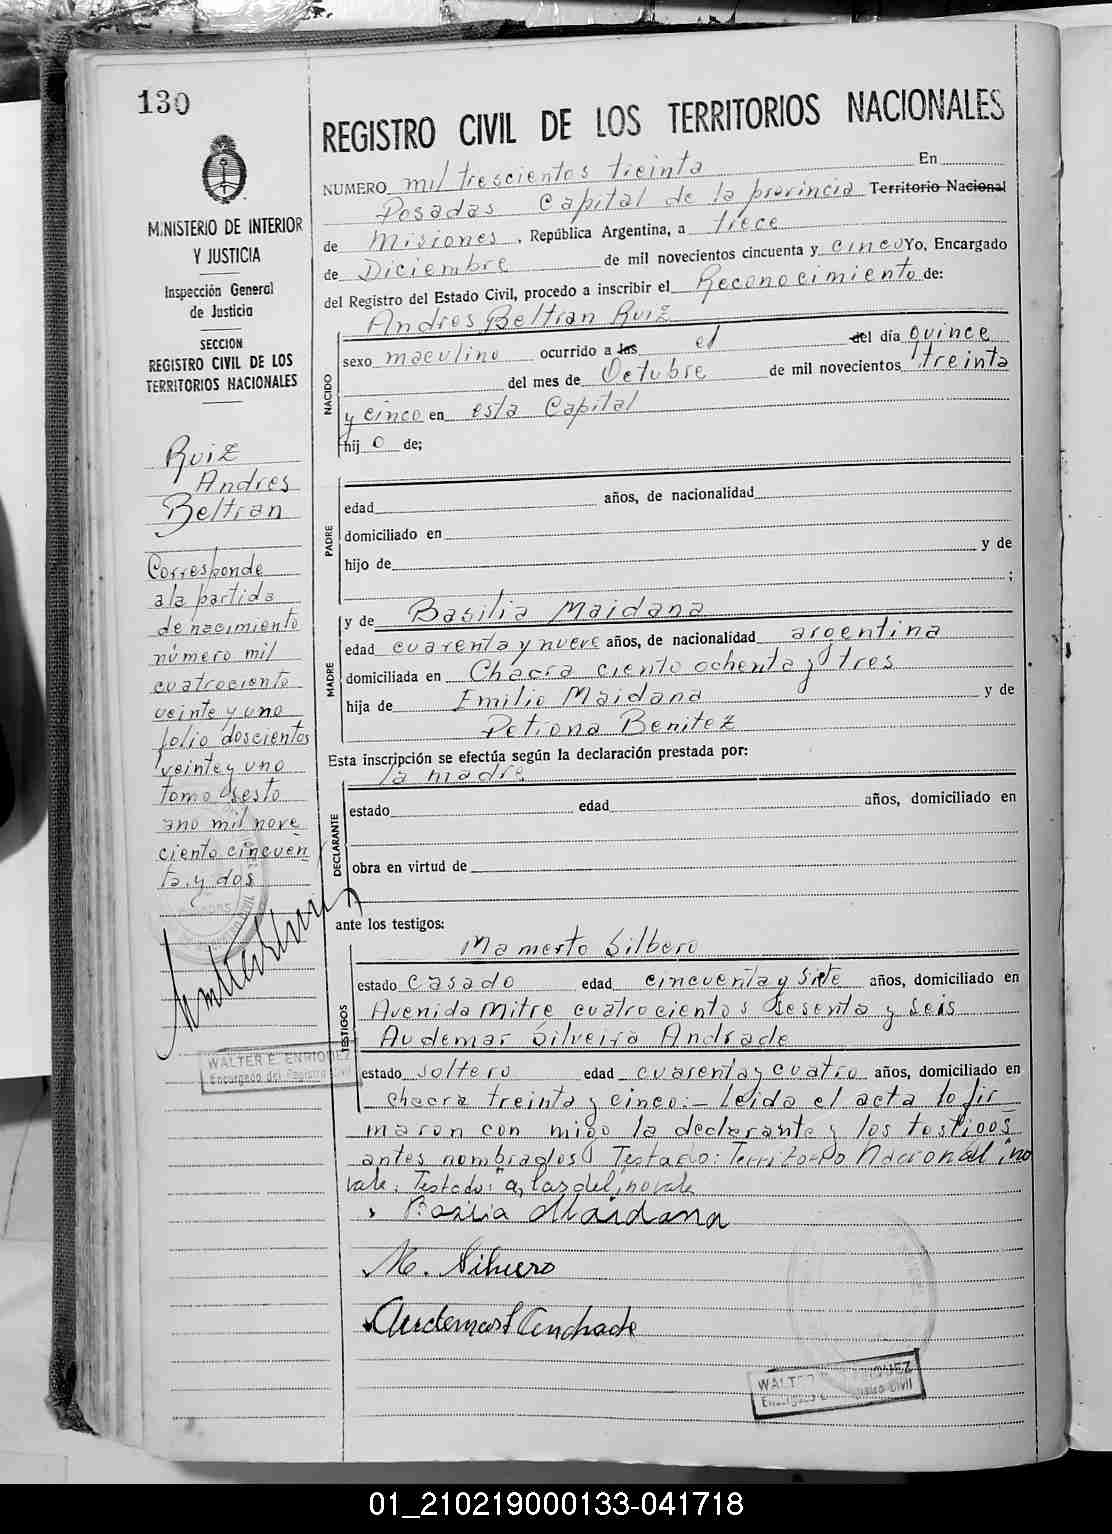 130
MINISTERIO DE INTERIOR
Y JUSTICIA
Inspección General
de Justicia
SECCION
REGISTRO CIVIL DE LOS
TERRITORIOS NACIONALES
Ruiz
Andres
Beltran
Corresponde
a la partida
de nacimiento
número mil
cuatrociento
veinte y uno
folio doscientos
veinte y uno
tomo sesto
ano mil nove
ciento cincuen
ta y dos
WALTER E. ENRIQUEZ
Encargado del Registro Civil
REGISTRO CIVIL DE LOS TERRITORIOS NACIONALES
NUMERO mil trescientos treinta En
Posadas Capital de la provincia Territorio Nacional
de Misiones, República Argentina, a trece
de Diciembre de mil novecientos cincuenta y cinco Yo, Encargado
del Registro del Estado Civil, procedo a inscribir el Reconocimiento de:
Andres Beltran Ruiz
NACIDO
sexo masculino ocurrido a las el del día quince
del mes de Octubre de mil novecientos treinta
y cinco en esta Capital
hij o de;
PADRE
edad años, de nacionalidad
domiciliado en
hijo de y de
;
MADRE
y de Basilia Maidana
edad cuarenta y nueve años, de nacionalidad argentina
domiciliada en Chacra ciento ochenta y tres
hija de Emilio Maidana y de
Petrona Benitez
Esta inscripción se efectúa según la declaración prestada por:
la madre
DECLARANTE
estado edad años, domiciliado en
obra en virtud de
ante los testigos:
TESTIGOS
Mamerto Silbero
estado casado edad cincuenta y siete años, domiciliado en
Avenida Mitre cuatrocientos sesenta y seis
Audemar Silveira Andrade
estado soltero edad cuarenta y cuatro años, domiciliado en
chacra treinta y cinco:- Leida el acta lo fir
maron con migo la declarante y los testigos
antes nombrados Testado: Territorio Nacional, no
vale. Testado: "a, las del, no vale
Basilia Maidana
M. Silvero
Audemar S Andrade
WALTER E. ENRIQUEZ
Encargado del Registro Civil
01_210219000133-041718